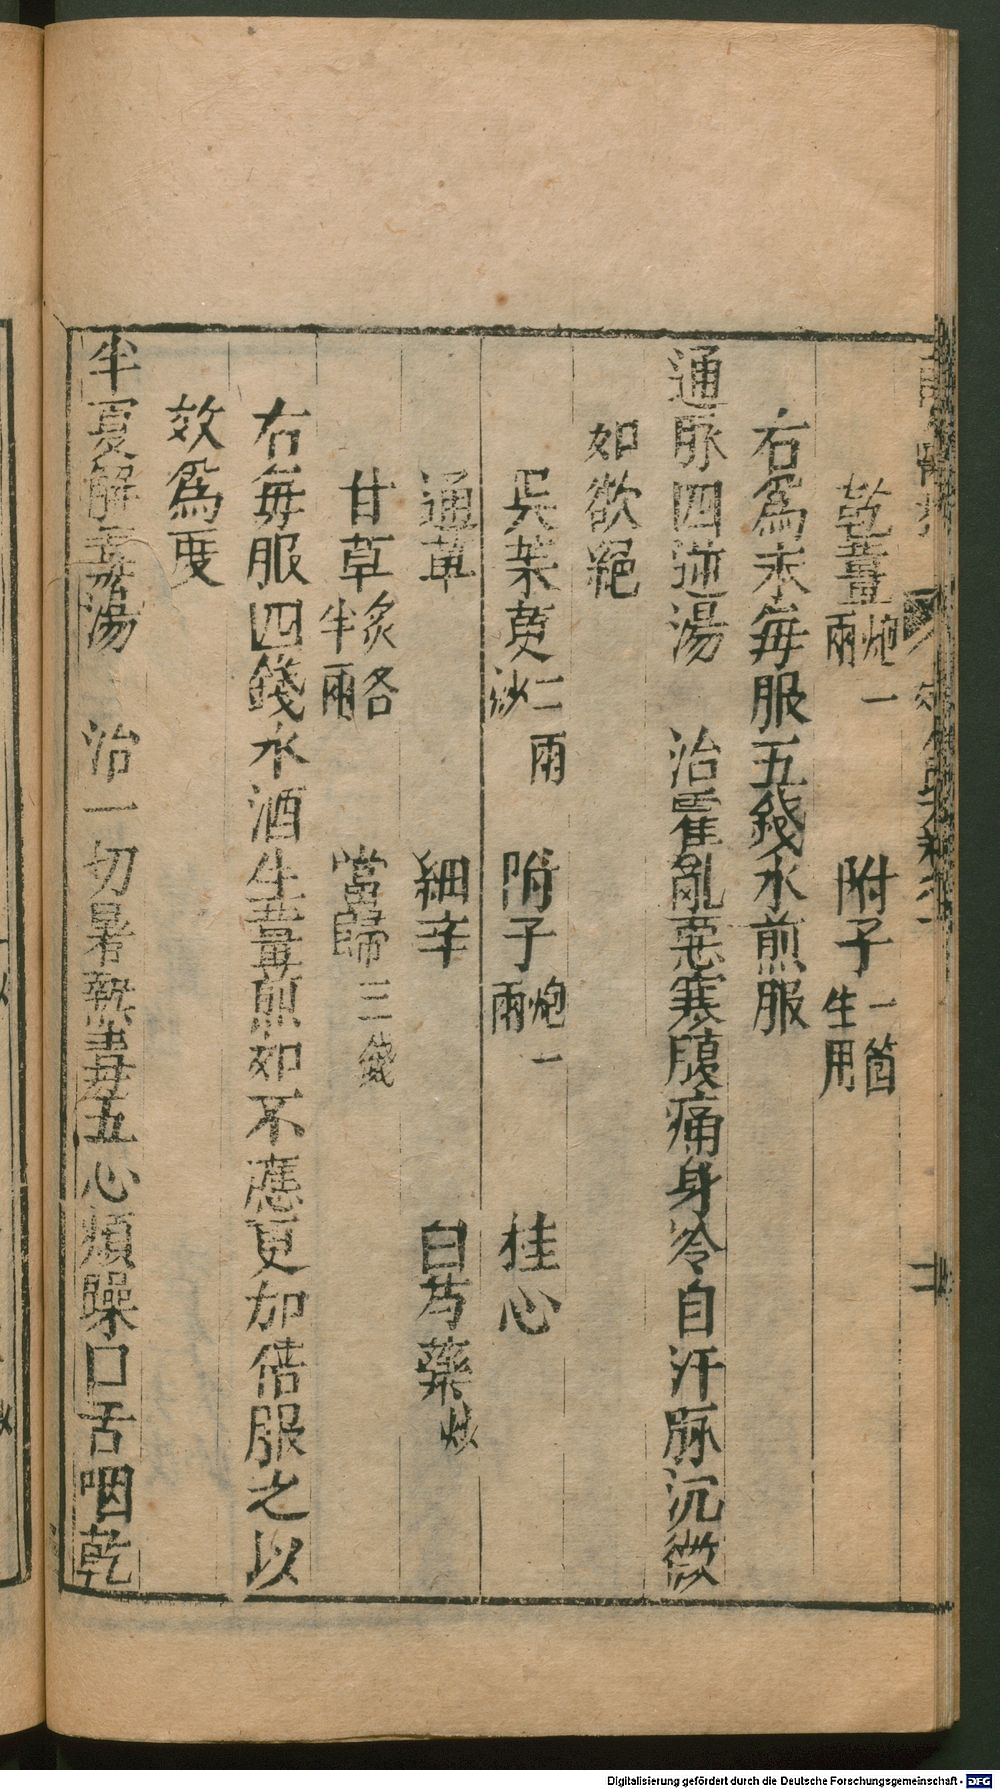 乾薑炮一兩　附子一箇生用
右爲末每服五錢水煎服
通脉四逆湯　治霍亂惡寒腹痛身冷自汗脉沉微
如欲絕
吳茱萸二兩炒　附子炮一兩　桂心
通草　細辛　白芍藥炒
甘草炙各半兩　當歸三錢
右每服四錢水酒生薑煎如不應更加倍服之以
效爲度
半夏解毒湯　治一切暑熱毒五心煩躁口舌咽乾
Digitalisierung gefördert durch die Deutsche Forschungsgemeinschaft - DFG